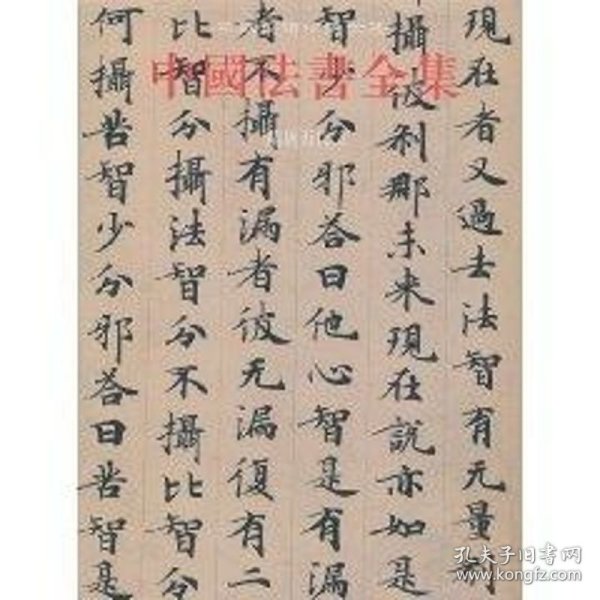 中國法書全集
現在者又過去法智有无量刹
攝彼刹那未来現在說亦如是
智少分邪答曰他心智是有漏
者不攝有漏者彼无漏復有二
比智分攝法智分不攝比智分
何攝苦智少分邪答曰苦智是
孔夫子旧书网
www.kongfz.com